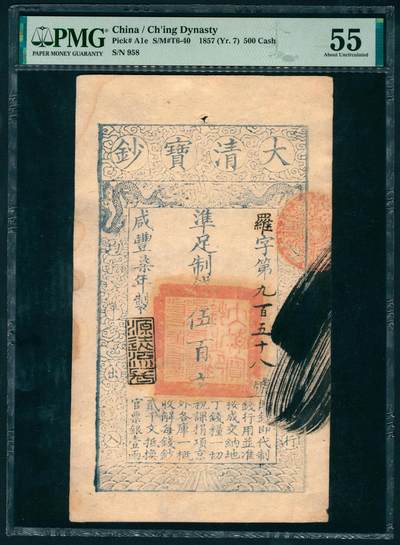 PMG
PAPER MONEY GUARANTY
China / Ch'ing Dynasty
Pick# A1e S/M#T6-40 1857 (Yr. 7) 500 Cash
S/N 958
55
About Uncirculated
大清寶鈔
羅字第九百五十八號
準足制錢伍百文
咸豐柒年製
源遠流長
平出入
行
即代制
錢行用並准
按成交納地
丁錢糧一切
稅課捐項京
外各庫一概
收解每錢鈔
貳千文抵換
官票銀壹兩